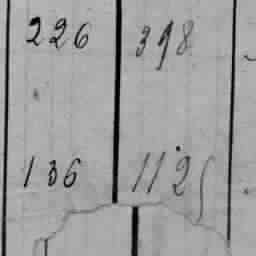 226 398
136 1125